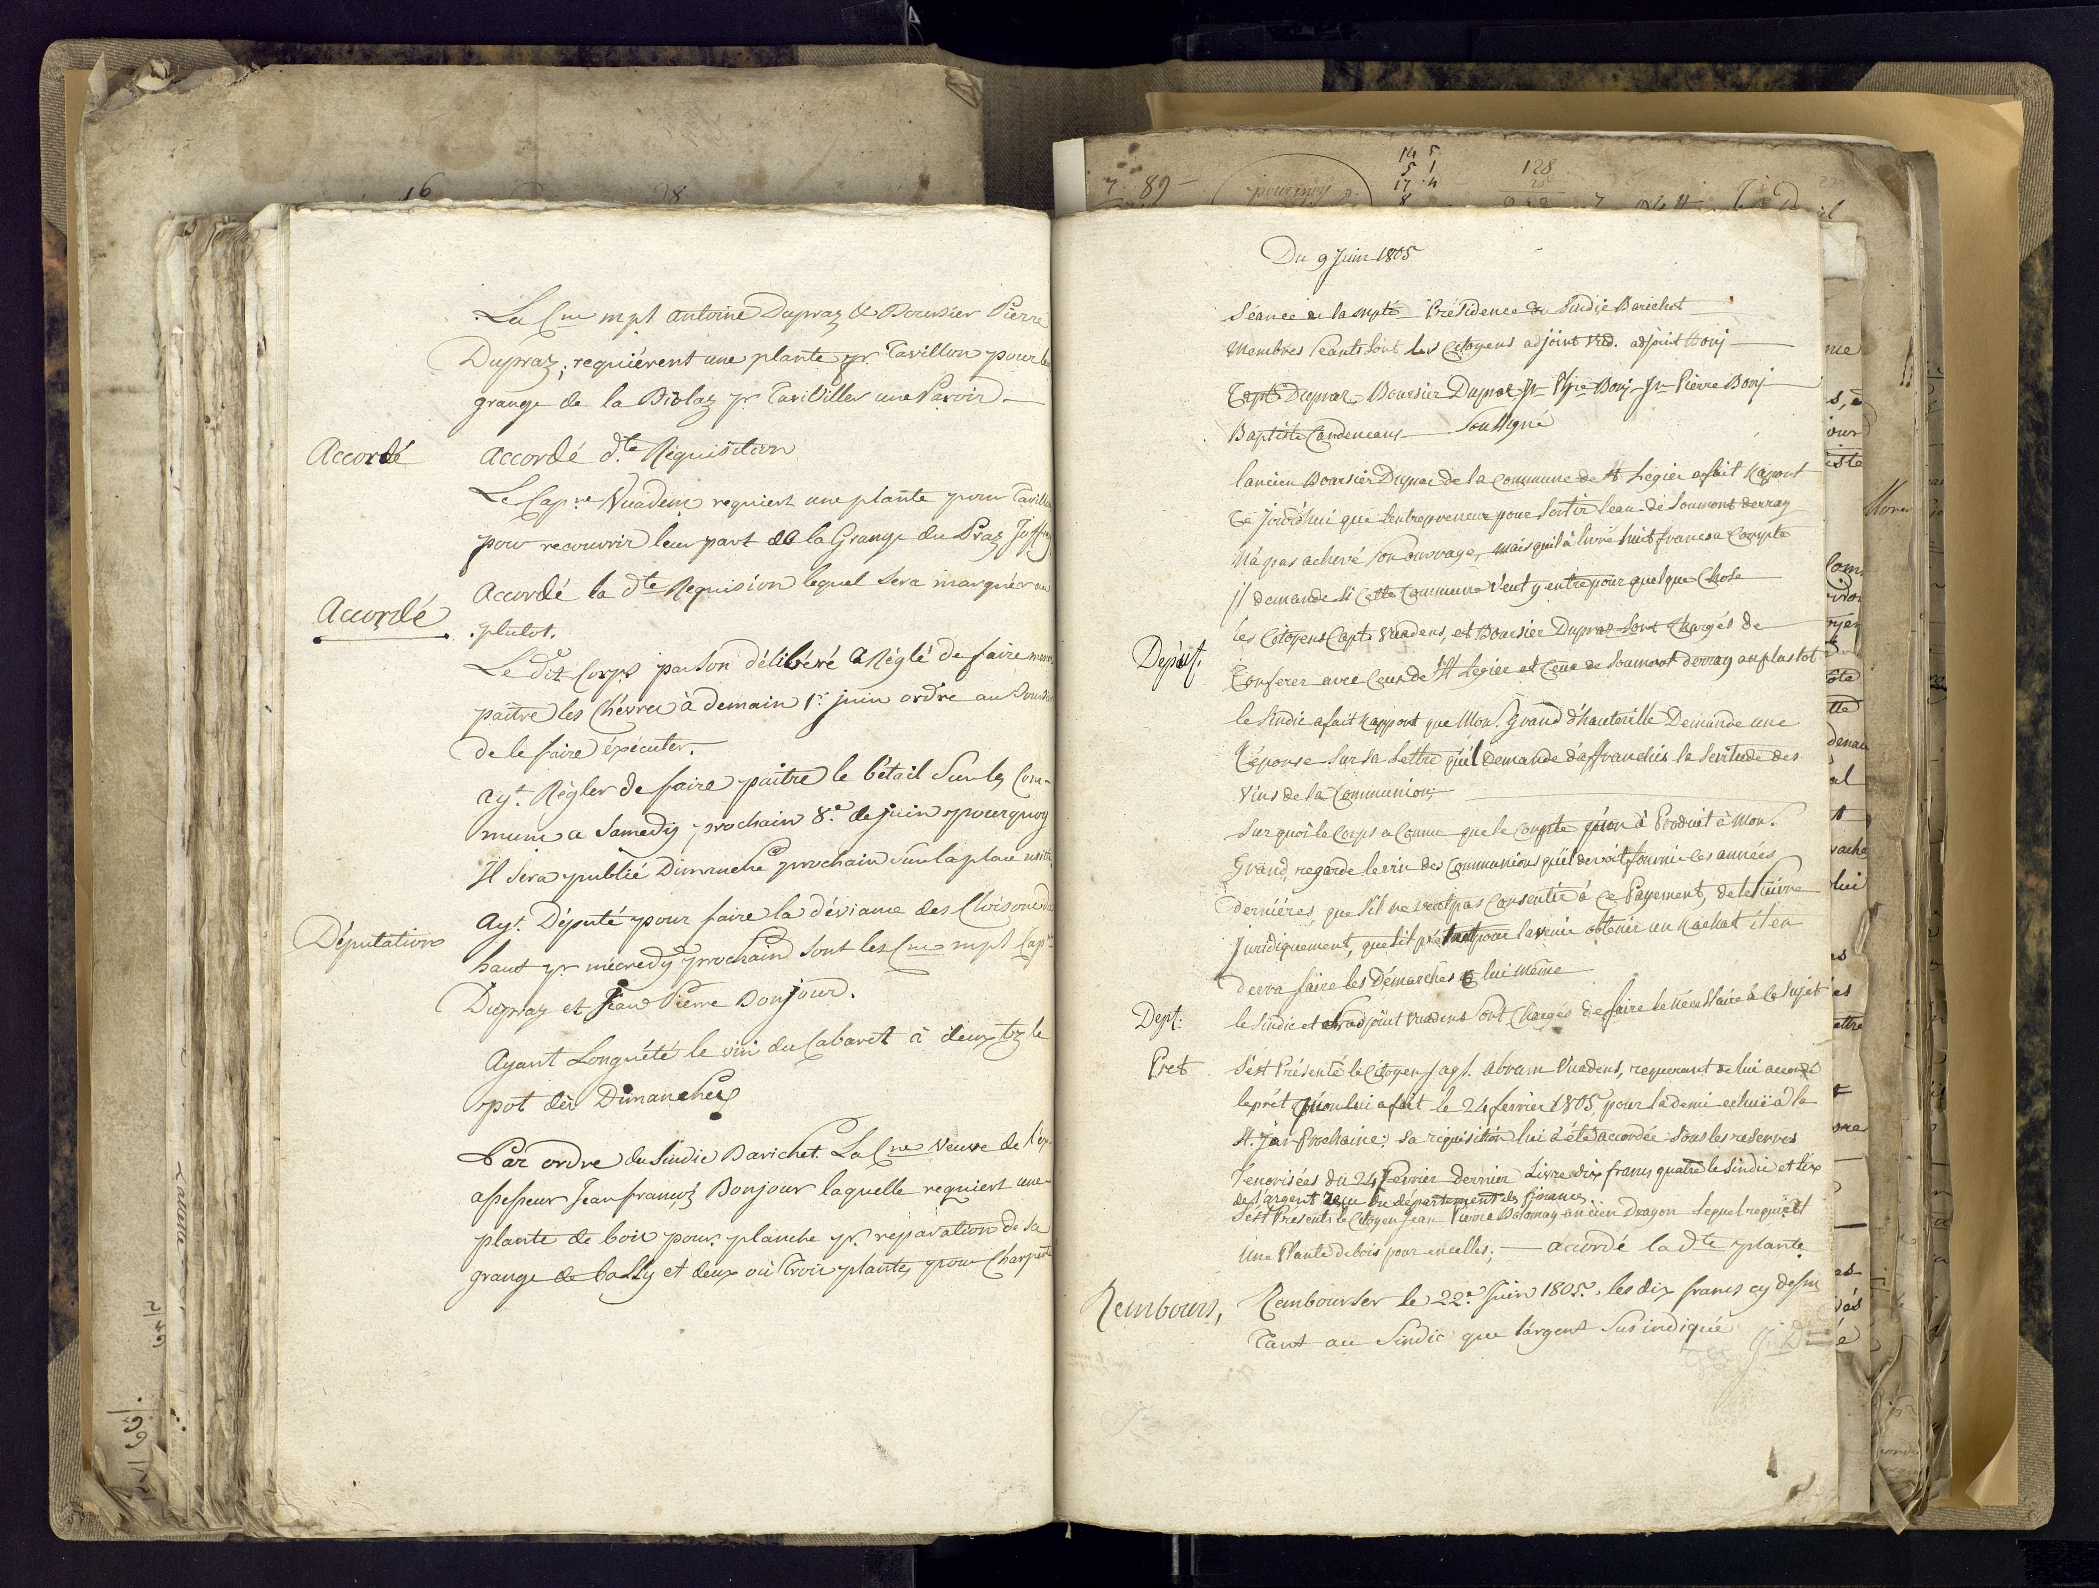 La Cne mpl antoine Dupraz & Boursier Pierre
Dupraz, requiérent une plante pr Tavillon pour la
grange de la Biolaz pr Tavilller une Paroir
Accordé
accordé d.te Requisition
Le Cap.ne Vuadens requiert une plante pour Tavillon
pour recouvrir leur part de la Grange du Praz
Accordé
Accordé la d.te Requision lequel sera marquér au
plutot.
Le dit Corps par son délibéré a Réglé de faire mener
paitre les Chévres à demain 1.r juin ordre au
de le faire éxécuter.
ay.t Régler de faire paitre le bétail sur les Com-
muns a Samedy prochain 8.e de juin pourquoy
Il sera publié Dimanche prochain sur la place
Députation
ay.t Député pour faire la déviance des Cloisons du
haut pr mécredy prochain sont les Cne mpl Cap.ne
Dupraz et Jean Pierre Bonjour.
Ayant Longuété le vin du Cabaret à deux bz le
pot dès Dimanche
Par ordre du Sindic Barichet. La Cne Veuve de l'ex-
assesseur Jean françois Bonjour laquelle requiert une
plante de bois pour planche pr. reparation de sa
grange de et deux ou trois plantes pour Charpente
Du 9 Juin 1805
Séance de la mpté Présidence du Sindic Barichet
Membres séants sont les Citoyens adjoint Vud. adjoint Bonj
Capt. Dupraz - Boursier Dupraz Jn Prre Bonj - Jn Pierre Bonj
Baptiste Cardeneaux Soussigné
lancien Boursier Dupraz de la Commune de St Légier a fait Raport
Ce jourdhui que lentrepreneur pour sortir leau de Soumont derray
Na pas achevé son ouvrage, mais quil à livré huit francs a Compte
il demande si Cette Commune Veut y entre pour quelque Chose
Déput.
les Citoyens Capt. Vuadens, et Boursier Dupraz sont Chargés de
Conferer avec Ceux de St Legier et Ceux de Soumont derray au plustot
le Sindic a fait Rapport que Mons. Grand d'hauteville Demande une
Réponse sur sa Lettre qu'il demande d'affranchir la Servitude des
Vins de la Communion,
Sur quoi le Corps a Connu que le Compte qu'on à Produit à Mons.
Grand, regarde le vin des Communions qu'il devoit fournir les années
derniéres, que s'il ne veut pas Consentir à Ce Payement, de le suivre
juridiquement, que sil prétent pour lavenir obtenir un Rachat il en
devra faire les Démarches lui même
Dept.
le Sindic et adjoint Vuadens sont Chargés de faire le nécessaire à Ce Sujet
Pret
S'est Présenté le Citoyen Abram Vuadens, requerant de lui accordé
le prét qu'on lui a fait le 24 fevrier 1805, pour la demi echuë à la
St. Jn Prochaine; sa réquisition lui à été accordée Sous les reserves
Tenorisées du 24 Fevrier dernier Livre dix francs quatre le Sindic et six
de l'argent reçu du département des finances
S'est Présenté le Citoyen Jean Pierre ancien Dragon Lequel requiert
Une Plante de bois pour encelles; — accordé la d.te plante
Rembours,
Rembourser le 22.e Juin 1805. les dix francs cy dessu
Tant au Sindic que l'argent Sus indiqué